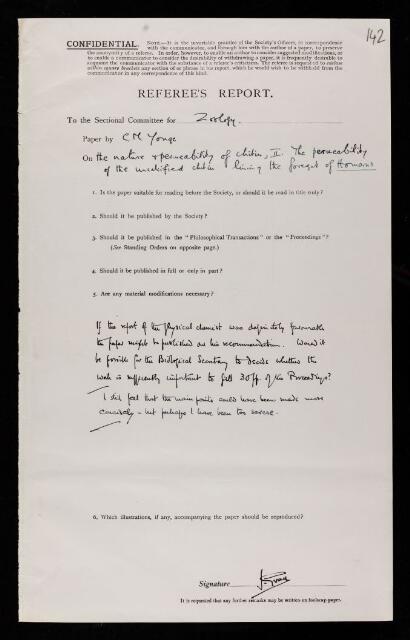 142
CONFIDENTIAL. NOTE.—It is the invariable practice of the Society's Officers, in correspondence
with the communicator, and through him with the author of a paper, to preserve
the anonymity of a referee. In order, however, to enable an author to consider suggested modifications, or
to enable a communicator to consider the desirability of withdrawing a paper, it is frequently desirable to
acquaint the communicator with the substance of a referee's criticisms. The referee is requested to enclose
within square brackets any section of or phrase in his report, which he would wish to be withheld from the
communicator in any correspondence of this kind.
REFEREE'S REPORT.
To the Sectional Committee for Zoology.
Paper by C M Yonge
On the nature & permeability of chitin, II. The permeability
of the uncalcified chitin lining the foregut of Homarus
1. Is the paper suitable for reading before the Society, or should it be read in title only?
2. Should it be published by the Society?
3. Should it be published in the "Philosophical Transactions" or the "Proceedings"?
(See Standing Orders on opposite page.)
4. Should it be published in full or only in part?
5. Are any material modifications necessary?
If the report of the physical chemist was definitely favourable
the paper might be published on his recommendation. Would it
be possible for the Biological Secretary to decide whether the
work is sufficiently important to fill 30 pp. of the Proceedings?
I did feel that the main points could have been made more
concisely – but perhaps I have been too severe.
6. Which illustrations, if any, accompanying the paper should be reproduced?
Signature
It is requested that any further remarks may be written on foolscap paper.